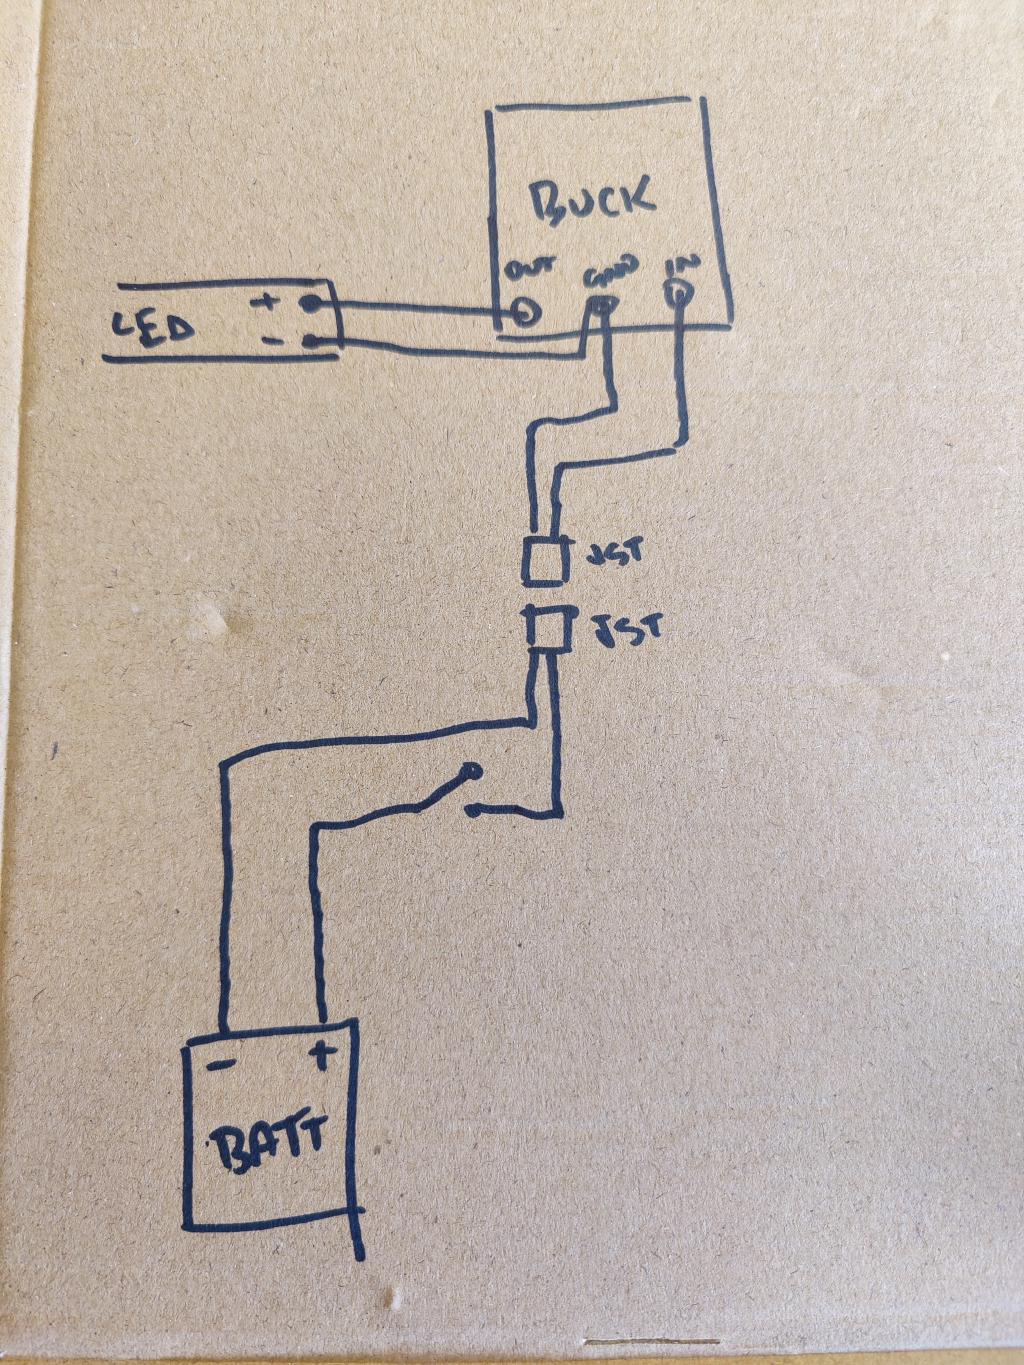 BUCK
OUT GND IN
+
LED
-
JST
JST
- +
BATT